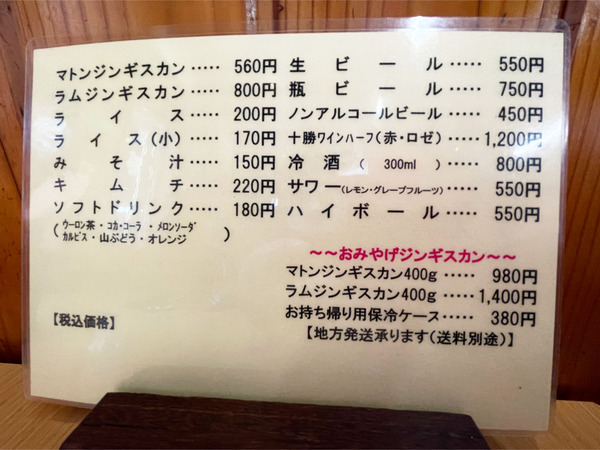 マトンジンギスカン ····· 560円
ラムジンギスカン ····· 800円
ライス ····· 200円
ライス(小) ····· 170円
みそ汁 ····· 150円
キムチ ····· 220円
ソフトドリンク ····· 180円
(ウーロン茶・コカ・コーラ・メロンソーダ
カルピス・山ぶどう・オレンジ)
【税込価格】
生ビール ····· 550円
瓶ビール ····· 750円
ノンアルコールビール ····· 450円
十勝ワインハーフ(赤・ロゼ) ····· 1,200円
冷酒(300ml) ····· 800円
サワー(レモン・グレープフルーツ) ····· 550円
ハイボール ····· 550円
～～おみやげジンギスカン～～
マトンジンギスカン400g ····· 980円
ラムジンギスカン400g ····· 1,400円
お持ち帰り用保冷ケース ····· 380円
【地方発送承ります(送料別途)】